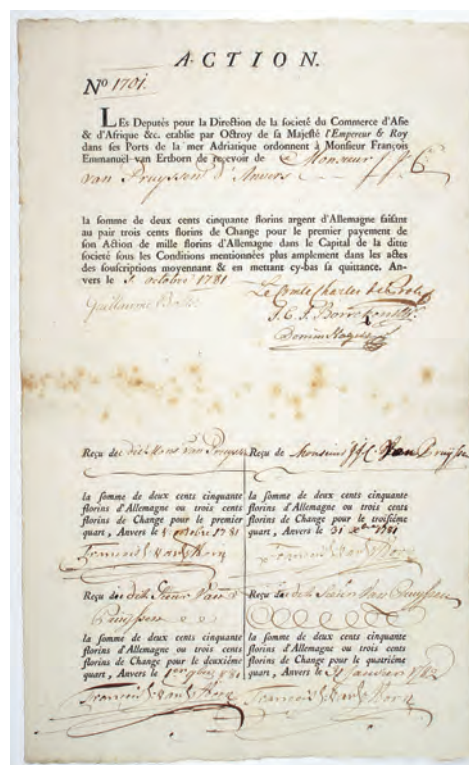 A·CTION.
Nº 1701.
LEs Deputés pour la Direction de la societé du Commerce d'Asie
& d'Afrique &c. etablie par Octroy de sa Majesté l'Empereur & Roy
dans ses Ports de la mer Adriatique ordonnent à Monsieur François
Emmanuel van Ertborn de reçevoir de Monsieur
van Pruyssen d'Anvers
la somme de deux cents cinquante florins argent d'Allemagne faisant
au pair trois cents florins de Change pour le premier payement de
son Action de mille florins d'Allemagne dans le Capital de la ditte
societé sous les Conditions mentionnées plus amplement dans les actes
des souscriptions moyennant & en mettant cy-bas sa quittance. An-
vers le octobre 1781
Guillaume Bolts
Le Comte Charles de Proli
Reçu de Monsieur
Reçu de
la somme de deux cents cinquante
florins d'Allemagne ou trois cents
florins de Change pour le premier
quart, Anvers le 1781
la somme de deux cents cinquante
florins d'Allemagne ou trois cents
florins de Change pour le troisième
quart, Anvers le 31 1781
Reçu du dit Sieur Van
Pruyssen
la somme de deux cents cinquante
florins d'Allemagne ou trois cents
florins de Change pour le deuxième
quart, Anvers le
Reçu du dit Sieur Van Pruyssen
la somme de deux cents cinquante
florins d'Allemagne ou trois cents
florins de Change pour le quatrième
quart, Anvers le 31 Janvier